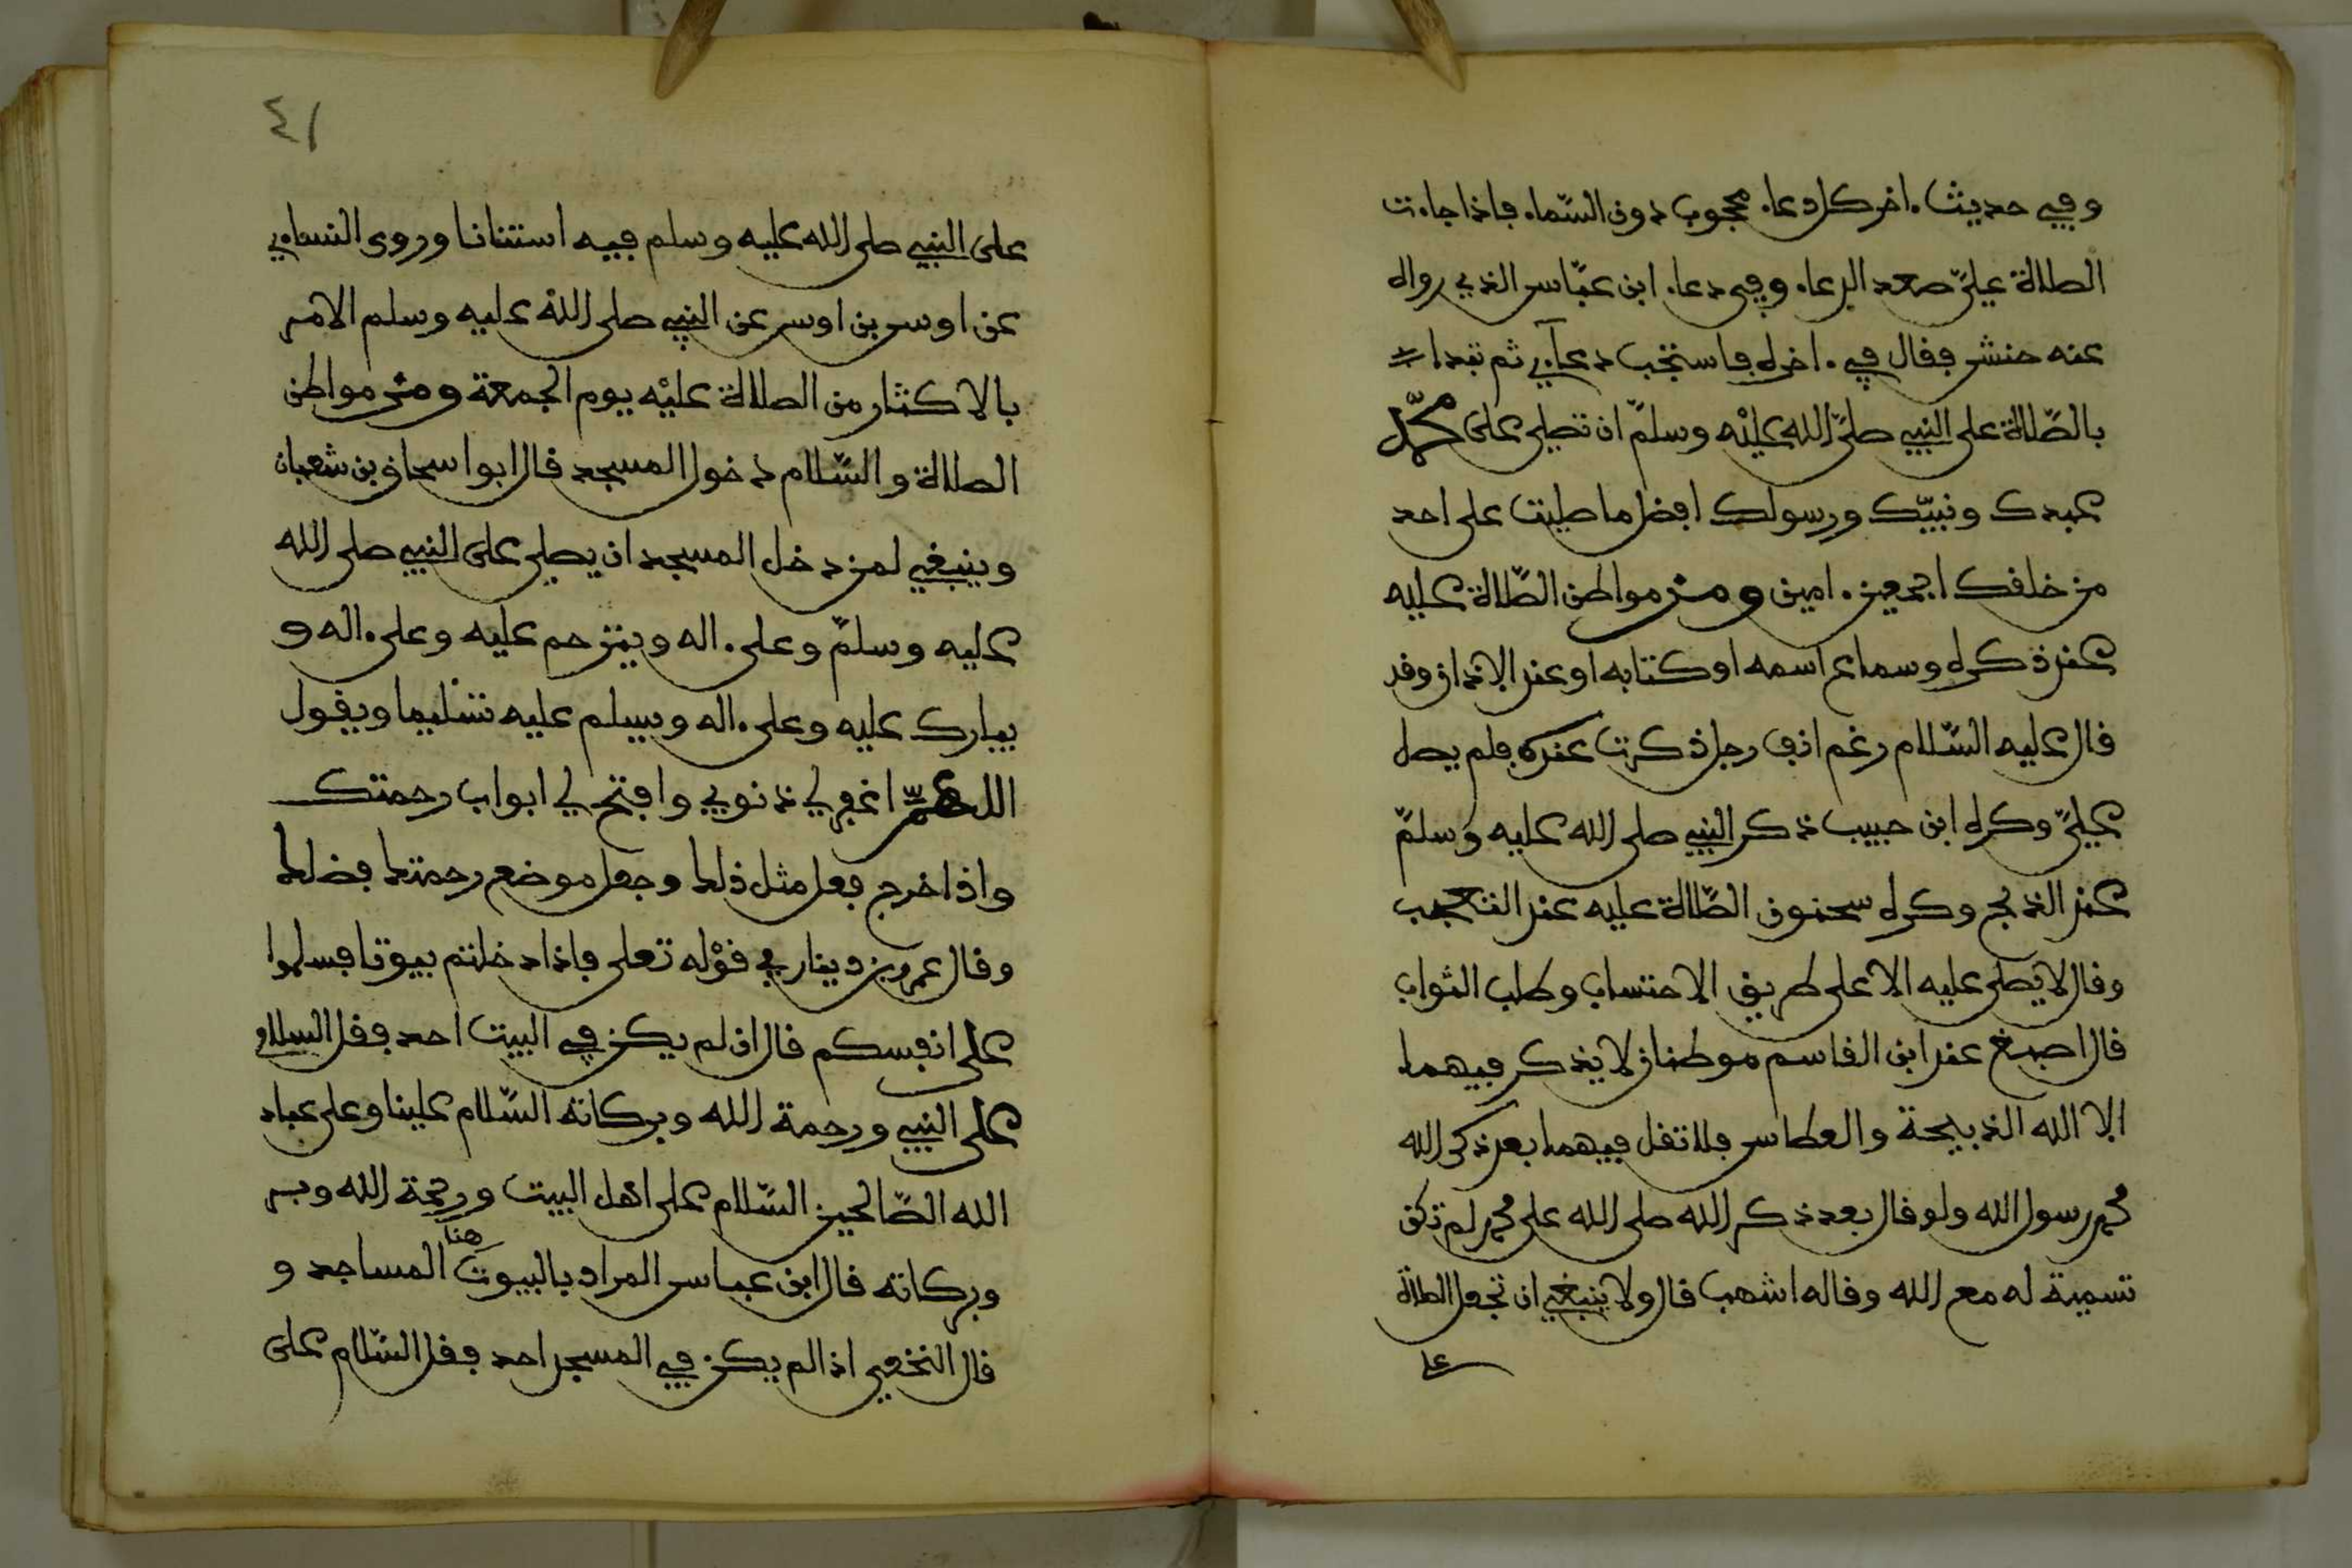 وفي حديث اخر كل دعاء محجوب دون السّماء فاذا جاءت
الصلاة عليّ صعد الدعاء وفي دعاء ابن عبّاس الذي رواه
عنه حنش فقال في اخره فاستجب دعآءي ثم تبدا
بالصّلاة على النبي صلّى الله عليْه وسلمّ ان تصلي على محمّد
عبدك ونبيّك ورسولك افضل ما صليت على احد
من خلفك اجمعين امين ومن مواطن الصّلاة عليه
عند ذكره وسماع اسمه او كتابه او عند الاذان وقد
قال عليه السّلام رغم انف رجل ذكرت عنده فلم يصل
عليّ وكره ابن حبيب ذكر النبي صلى الله عليه وسلمّ
عند الذبح وكره سحنون الصّلاة عليه عند التعجب
وقال لا يصلى عليه الا على طريق الاحتساب وطلب الثواب
قال اصبغ عند ابن القاسم موطنان لا يذكر فيهما
الا الله الذبيحة والعطاس فلا تقل فيهما بعد ذكر الله
محمد رسول الله ولو قال بعد ذكر الله صلى الله على محمد لم تكن
تسمية له مع الله وقاله اشهب قال ولا ينبغي ان تجعل الصلاة
على
٤١
على النبي صلى الله عليه وسلم فيه استنانا وروى النساءي
عن اوس بن اوس عن النبي صلى الله عليه وسلم الامر
بالاكثار من الصلاة عليْه يوم الجمعة ومن مواطن
الصلاة والسّلام دخول المسجد قال ابو اسحاق بن شعبان
وينبغي لمن دخل المسجد ان يصلي على النبي صلى الله
عليه وسلمّ وعلى اله ويترحم عليه وعلى اله و
يبارك عليه وعلى اله ويسلم عليه تسْليما ويقول
اللهمّ اغفر لي ذنوبي وافتح لي ابواب رحمتك
واذا خرج فعل مثل ذلك وجعل موضع رحمتك فضلك
وقال عمرو بن دينار في قوْله تعلى فاذا دخلتم بيوتا فسلموا
على انفسكم قال ان لم يكن في البيت احد فقل السلام
على النبي ورحمة الله وبركاته السّلام علينا وعلى عباد
الله الصّالحين السّلام على اهل البيت ورحمة الله وبر
وبركاته قال ابن عباس المراد بالبيوت هنا المساجد و
قال النخعي اذا لم يكن في المسجد احد فقل السّلام على